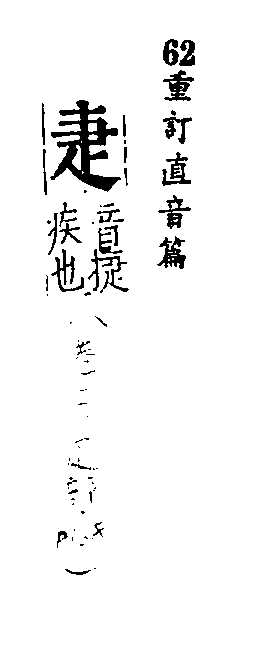 62重訂直音篇
疌
音捷
疾也
(卷 部 )